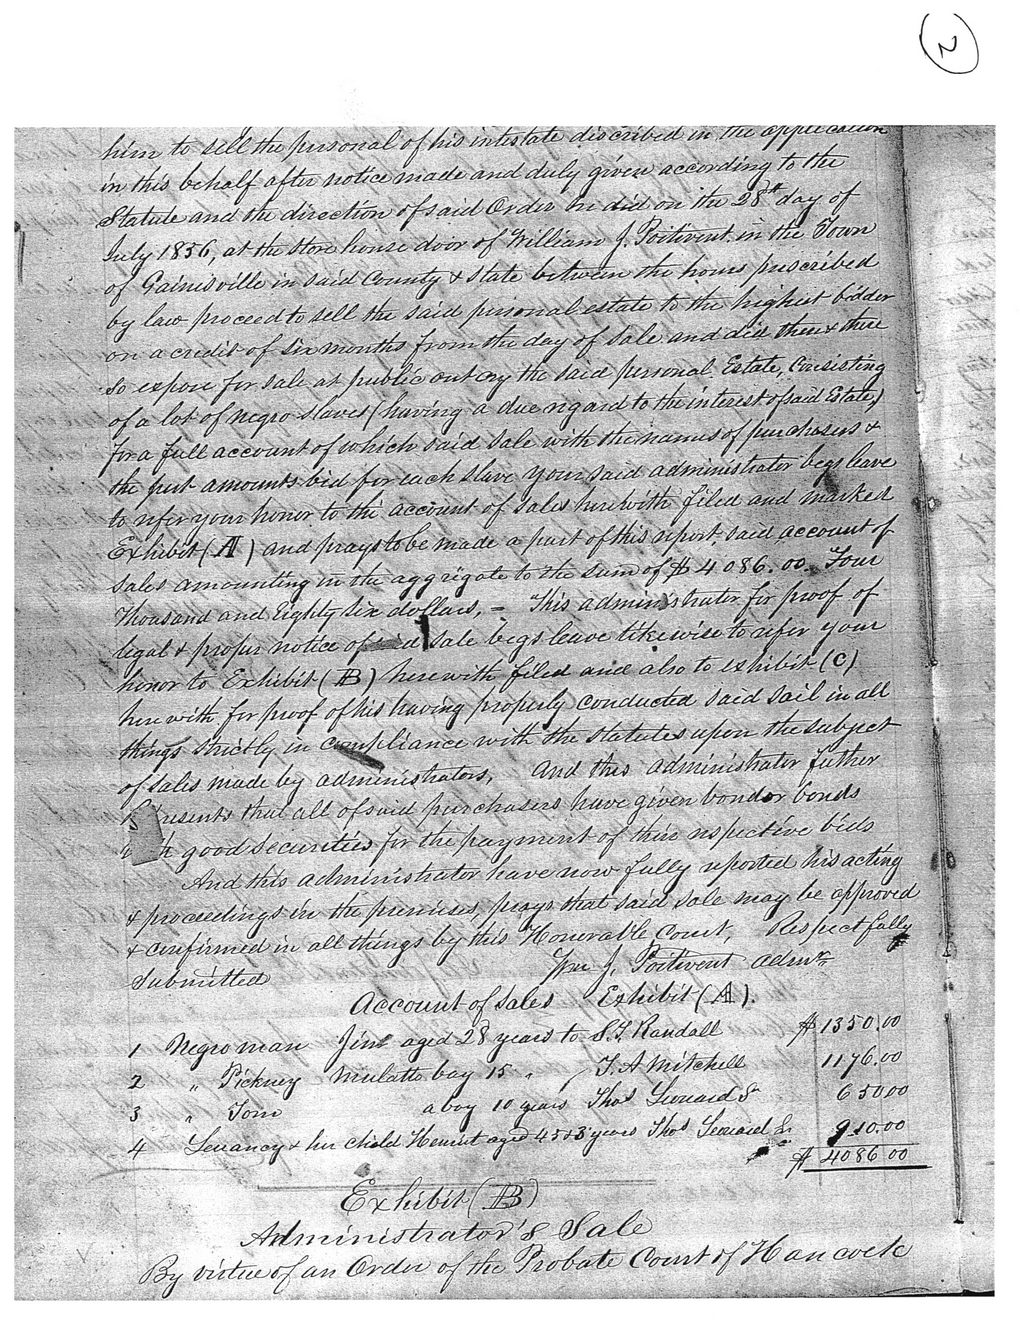 2
him to sell the personal of his intestate discribed in the application
in this behalf after notice made and duly given according to the
Statute and the direction of said Order he did on the 28th day of
July 1856, at the store house door of William J. Poitevent, in the Town
of Gainisville in said County & State between the hours prescribed
by law proceed to sell the said personal estate to the highest bidder
on a credit of six months from the day of sale and did then & there
so expose for sale at public out cry the said personal Estate, consisting
of a lot of negro slaves (having a due regard to the interest of said Estate,)
for a full account of which said sale with the names of purchasers &
the amounts bid for each slave your said administrator begs leave
to refer your honor to the account of sales herewith filed and marked
Exhibit (A) and prays to be made a part of this report, said account of
sales amounting in the aggregate to the sum of $4086.00 Four
Thousand and Eighty six dollars, - This administrater for proof of
legal & proper notice of sale begs leave likewise to refer your
honor to Exhibit (B) herewith filed and also to exhibit (C)
here with for proof of his having properly conducted said sail in all
things strictly in compliance with the statutes upon the subject
of sales made by administrators, And this administrator futher
that all of said purchasers have given bond or bonds
good securities for the payment of their respective bids
And this administrator have now fully reported his acting
& proceedings in the premises, prays that said sale may be approved
& confirmed in all things by this Honorable Court, Respectfully
Submitted Wm J. Poitevent admr
Account of sales Exhibit (A).
1 Negro man Jim aged 28 years to S. T. Randall $1350.00
2 " Pickney mulatto boy 15 " T. A Mitchell 1176.00
3 " Tom a boy 10 years Thos Leonard Sr 650 00
4 & her child aged 45 & 3 years Thos Leonard Sr 910.00
$4086 00
Exhibit (B)
Administrator's Sale
By virtue of an Order of the Probate Court of Hancock